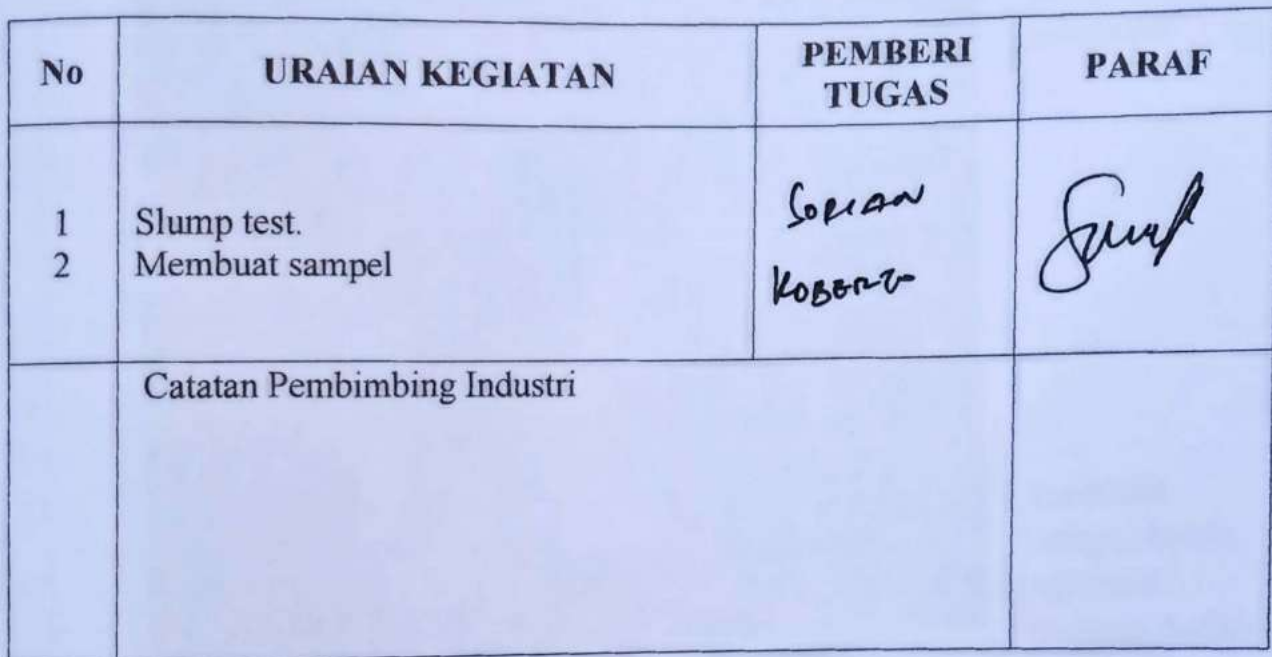 No URAIAN KEGIATAN PEMBERI TUGAS PARAF
1 Slump test.
2 Membuat sampel
Catatan Pembimbing Industri